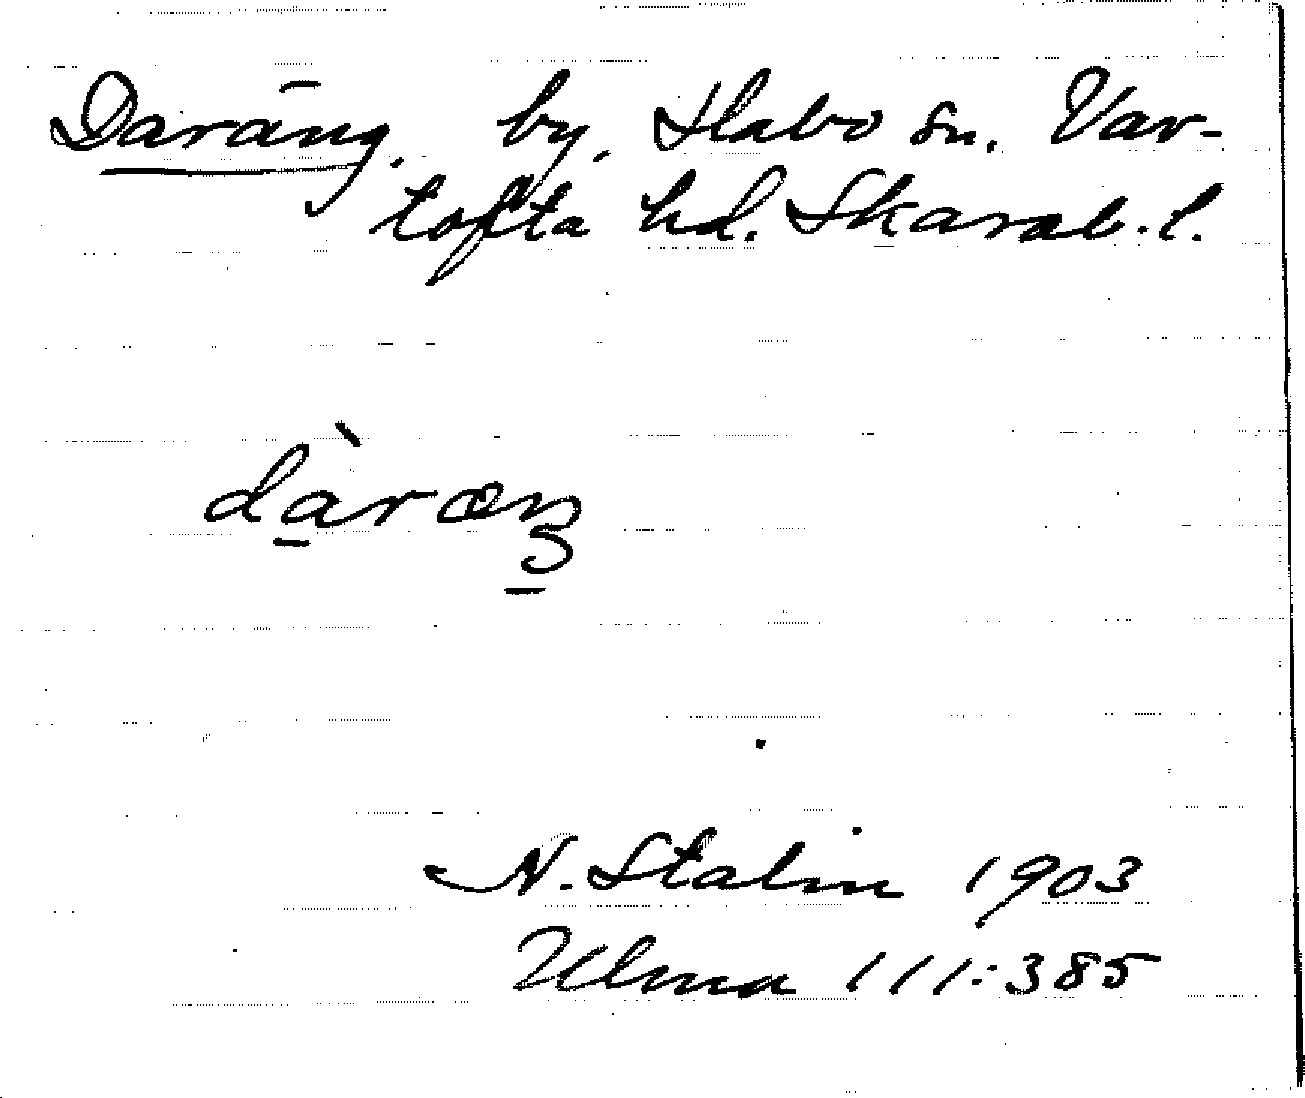 Daräng. by. Habo sn. Var-
tofta hd. Skarab. l.
dàræŋ
N. Stalin 1903
Ulma 111:385